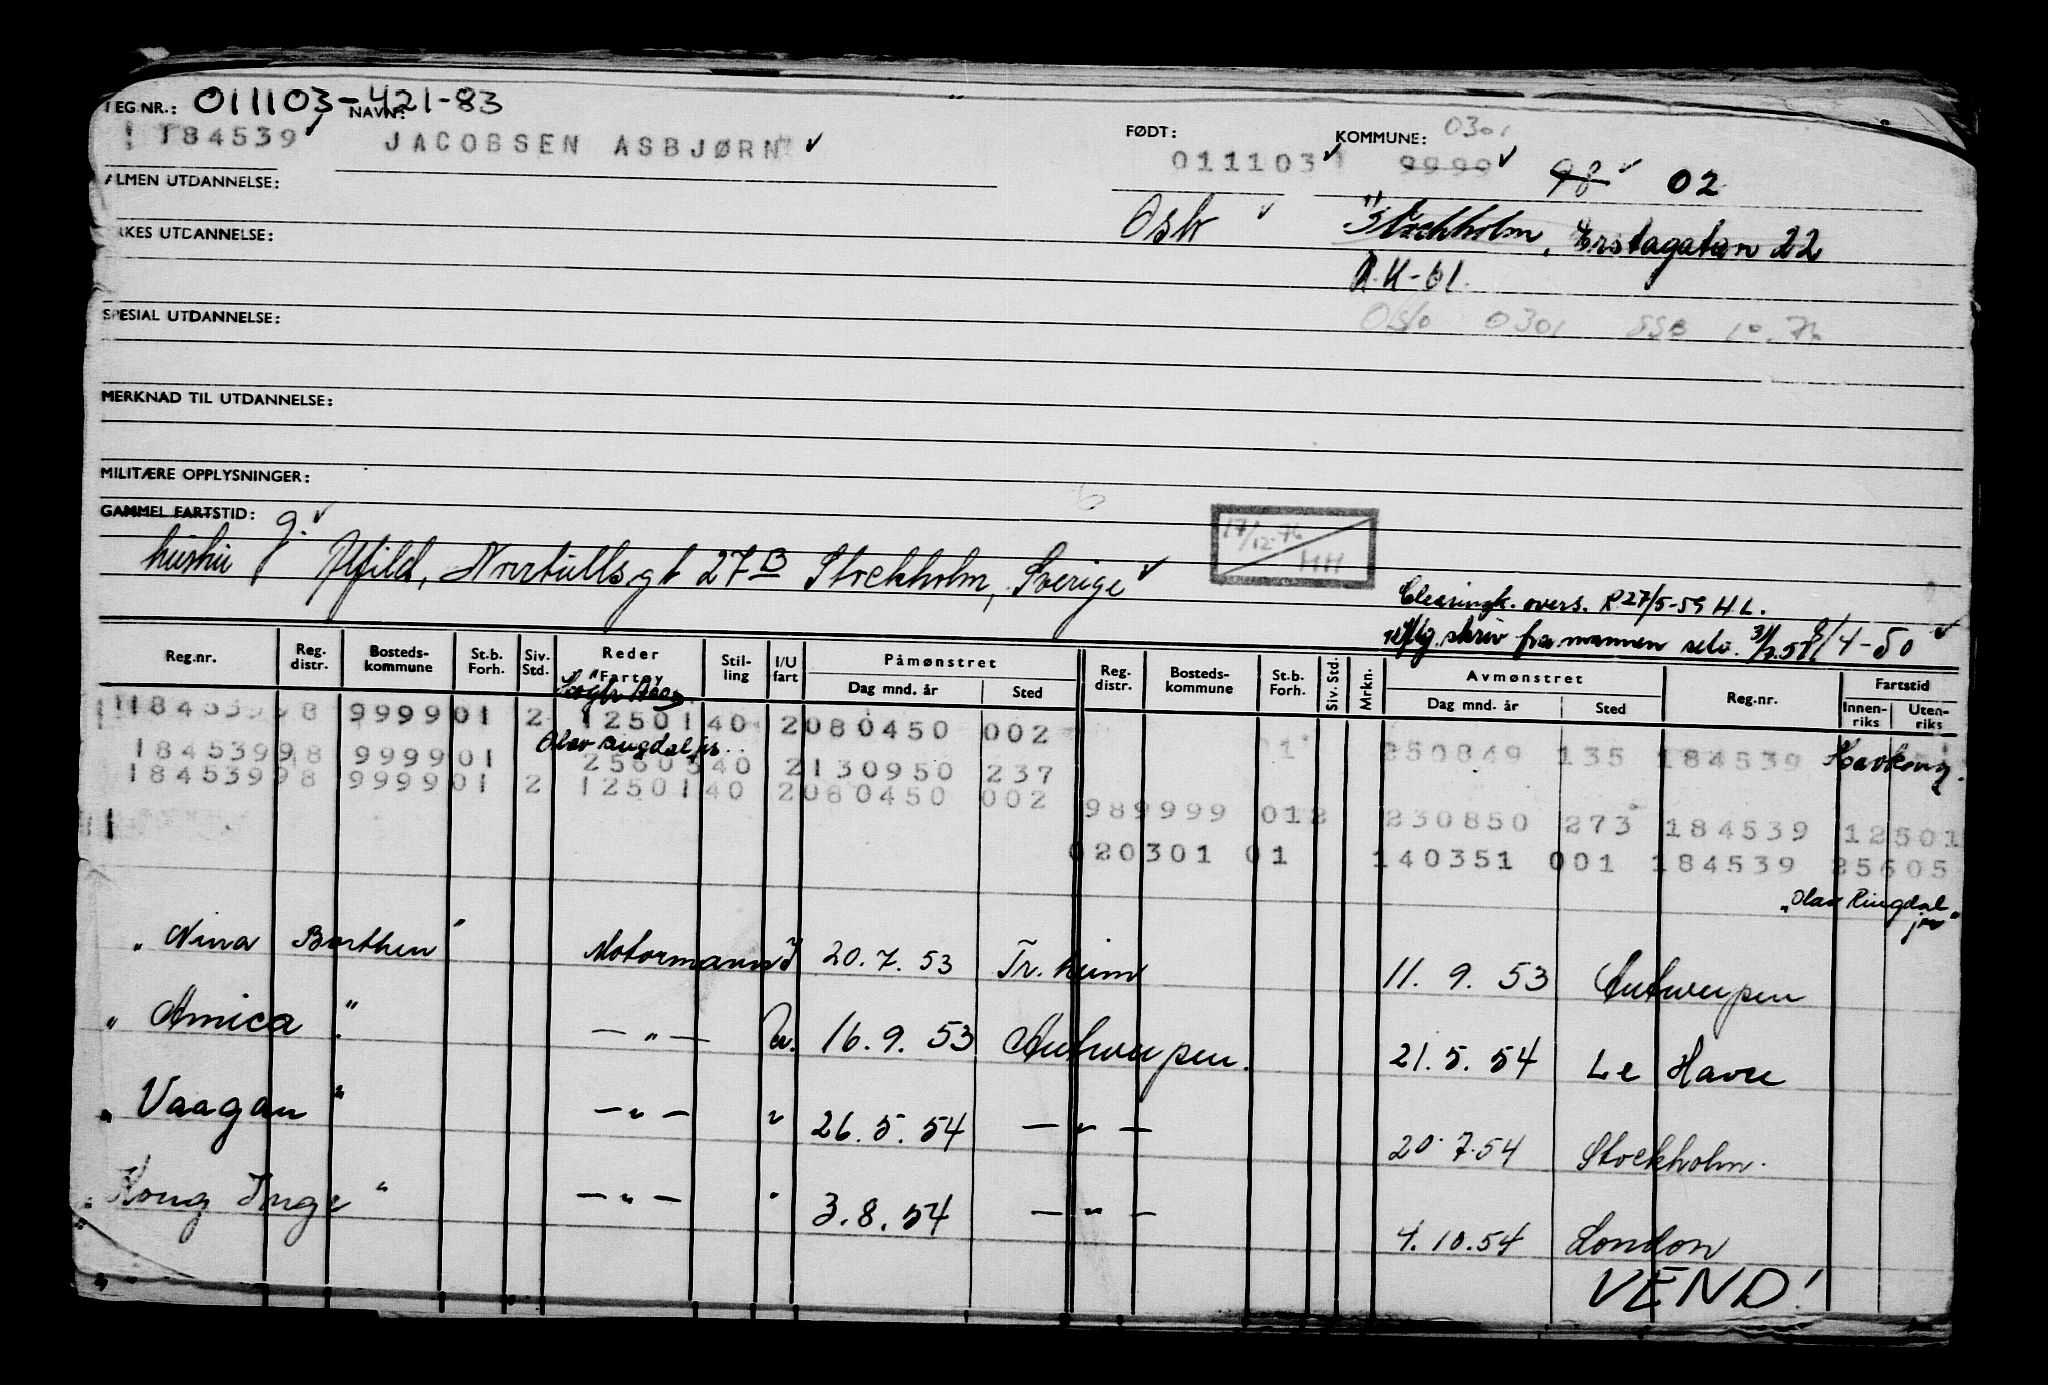 REG.NR.: 011103-421-83 NAVN:
184539 JACOBSEN ASBJØRN FØDT: 011103 KOMMUNE: 0301
9999 98 02
ALMEN UTDANNELSE:
Oslo Stockholm, Erstagatan 22
YRKES UTDANNELSE:
R.K-61.
SPESIAL UTDANNELSE: Oslo 0301 SSB 10.76
MERKNAD TIL UTDANNELSE:
MILITÆRE OPPLYSNINGER:
GAMMEL FARTSTID: g.
17/12-76 HH
hustru Alfild, Norrtullsgt 27B Stockholm, Sverige
Clearingk. overs. R 27/5-59 H.L.
skriv fra mannen selv. 4-50
Reg.nr. Reg. distr. Bosteds- kommune St.b. Forh. Siv. Std. Reder Fartøy Stil- ling I/U fart Påmønstret Dag mnd. år Sted Reg. distr. Bosteds- kommune St.b. Forh. Siv. Std. Mrkn. Avmønstret Dag mnd. år Sted Reg.nr. Fartstid Innen- riks Uten- riks
184539 98 9999 01 2 12501 40 2 080450 002
Olav Ringdal jr.
1 250849 135 184539
184539 98 9999 01 25605 40 2 130950 237
184539 98 9999 01 2 12501 40 2 080450 002
98 9999 01 2 230850 273 184539 12501
02 0301 01 140351 001 184539 25605
"Olav Ringdal jr"
"Nina Borthen" Motormann I 20.7.53 Tr.heim 11.9.53 Antwerpen
"Amica" — " — U. 16.9.53 Antwerpen. 21.5.54 Le Havre
"Vaagan" — " — " 26.5.54 — " — 20.7.54 Stockholm.
"Kong Inge" — " — " 3.8.54 — " — 4.10.54 London
VEND!